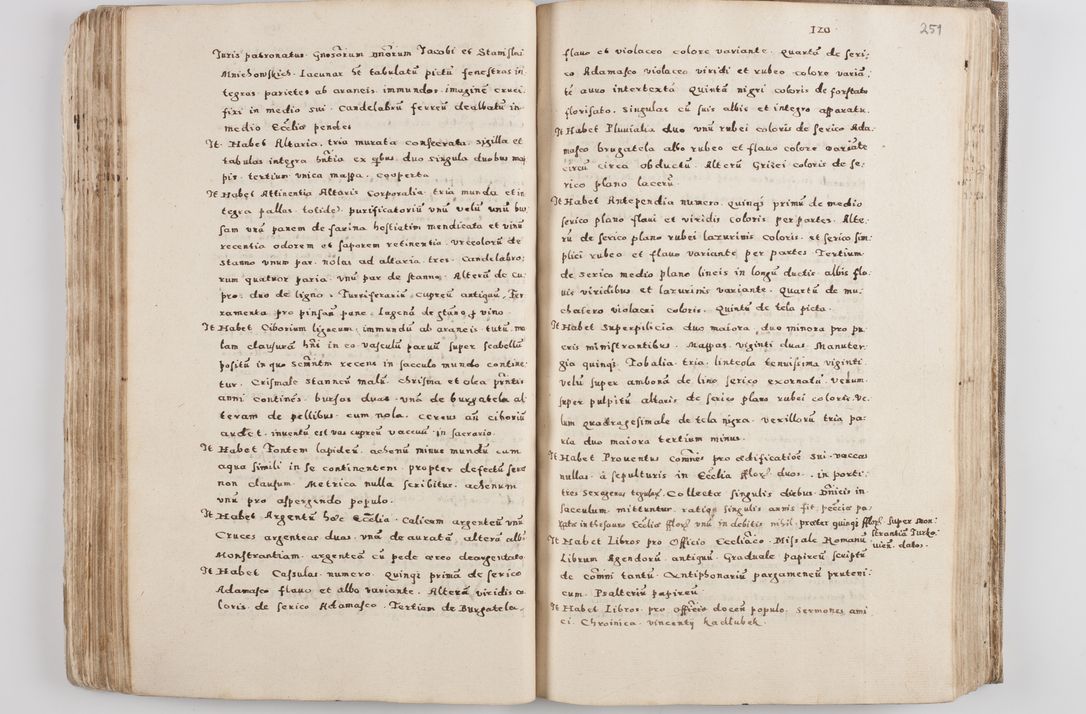 Iuris patronatus Gnosorum dnorum Iacobi et Stanislai
Mnichowskich. Lacunar het tabulatu pictu fenestras in
tegras parietes ab araneis immundos imagine cruci
fixi in medio sui. Candelabru ferreu dealbatu in
medio Eccliae pendet
It Habet Altaria tria murata consecrata sigilla et
tabulas integra hntia ex qbus duo singula duobus map
pis tertium unica mappa cooperta
It Habet Attinentia Altaris Corporalia tria munda et in
tegra pallas totide purificatoriu unu velu unu bur
sam una panem de farina hostiatim mendicata et vinu
recentia odorem et saporem retinentia urceoloru de
stanno unum par nolas ad altaria tres Candelabro
rum quatuor paria unu par de stanno Alteru de cu
pro duo de ligno Turriferariu cupreu antiquu, Fer
ramenta pro pinsan pane lagena de stano p vino
It Habet Ciborium ligneum immundu ab araneis tutu ma
lam clausura hns in eo vasculu parvu super scabellu
positu in quo Scmntm recens in sacculo mundo contine
tur. Crismale stanneu malu chrisma et olea pntis
anni continens bursas duas una de burgatela al
teram de pellibus cum nola cereus an ciboriu
ardet inventu est vas cupreu vacuu in sacrario
It Habet Fontem lapideu achenu minus mundu cum
aqua simili in se continentem propter defectu sera
non clausum Metrica nulla scribitur achenum
unu pro aspergendo populo
It Habet Argentu haec Ecclia Calicem argenteu unu
Cruces argenteas duas una de aurata altera alba
Monstrantiam argentea cu pede aereo deargentato
It Habet Casulas numero Quinqs prima de serico
Adamasco flavo et albo variante Altera viridis co
loris de serico Adamasco Tertiam de Burgatela
120
251
flavo et violaceo colore variante Quarta de seri
co Adamasco violaceo viridi et rubeo colore varia
te auro intertexta Quinta nigri coloris de forstato
florisato singulas cu suis albis et integro apparatu
It Habet Pluvialia duo unu rubei coloris de serico Ada
masco brugatela albo rubeo et flavo colore variate
circu circa obductu Alteru Grisei coloris de se
rico plano laceru
It Habet Antependia numero quinqs primu de medio
serico plano flavi et viridis coloris per partes Alte
ru de serico plano rubei lazurinis coloris et serico sim
plici rubeo et flavo variante per partes Tertium
de serico medio plano lineis in longu ductis albis fla
vis viridibus et lazurinis variante Quartu de mu
chaiero violacei coloris Quintu de tela picta
It Habet Superpilicia duo maiora duo minora pro pu
eris ministrantibus Mappas viginti duas Manuter
gia quinqs Tobalia tria linteola tenuissima viginti
velu super ambona de lino serico exornatu velum
super pulpitu altaris de serico plano rubei coloris ve
lum quadragesimale de tela nigra vexilloru tria pa
ria duo maiora tertium minus
It Habet Proventus comnes pro aedificatioe sui vaccas
nullas à sepulturis in Ecclia flor duos in porti
tres Sexagenas Collecta singulis diebus Dnicis in
sacculum mittuntur ratiqs singulis annis fit peccia po
sita in thesauro Eccliae flor unu in debitis nihil praeter quinqs flor super mon
strantia Turko
vien. datos
It Habet Libros pro Officio Eccliaco Missale Romanu
Librum Agendoru antiquu Graduale papireu scriptu
de comni tantu Antiphonariu pargameneu pruteni
cum Psalteriu papireu
It Habet Libros pro officio docen populo Sermones ami
ci Chroinica vincenty kadlubek